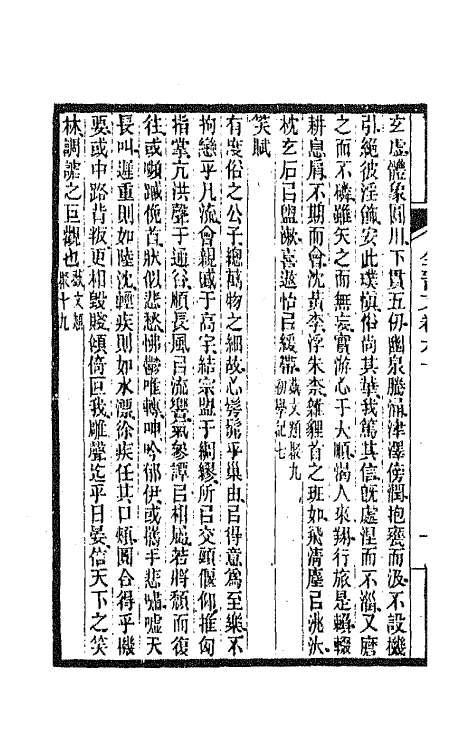 玄虛體象圓川下貫五仞幽泉騰涌津澤傍潤抱甕而汲不設機
引絕彼淫飾安此璞愼俗尚其華我篤其信旣處涅而不淄又磨
之而不磷雖矢之而無哀實游心于大順渴人來翔行旅是賴輟
耕息肩不期而會沈黃李浮朱柰雜貍首之班如飛淸塵㠯洮汰
枕玄石㠯盥漱喜遨怡㠯緩帶 藝文類聚九 初學記七
笑賦
有度俗之公子總萬物之細故心髣髴乎巢由㠯得意爲至樂不
拘戀乎凡流會親戚于高宇結宗盟于綢繆所㠯交頸偃仰推匈
指掌亢洪聲于通谷順長風㠯流響氣參譚㠯相屬若將頹而復
往或嚬蹙俛首狀似悲愁怫鬱唯轉呻吟郁伊或攜手悲嘯噓天
長叫遲重則如陸沈輕疾則如水漂徐疾任其口頰圓合得乎機
要或中路背叛更相毀賤傾倚叵我雕聲迄乎日晏信天下之笑
林調謔之巨觀也 藝文類聚十九